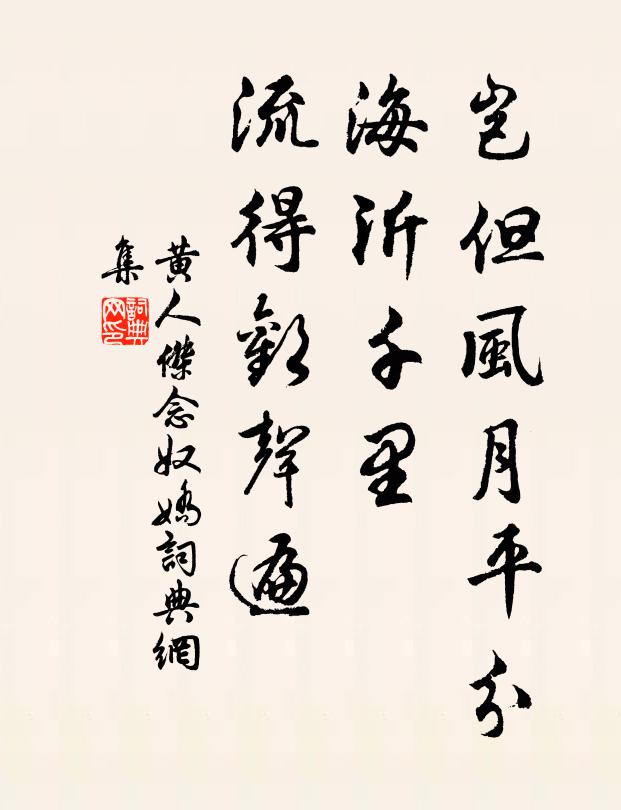 豈但風月平分
海沂千里
流得歡聲遍
黃人傑念奴嬌詞典網
集
詞典網印